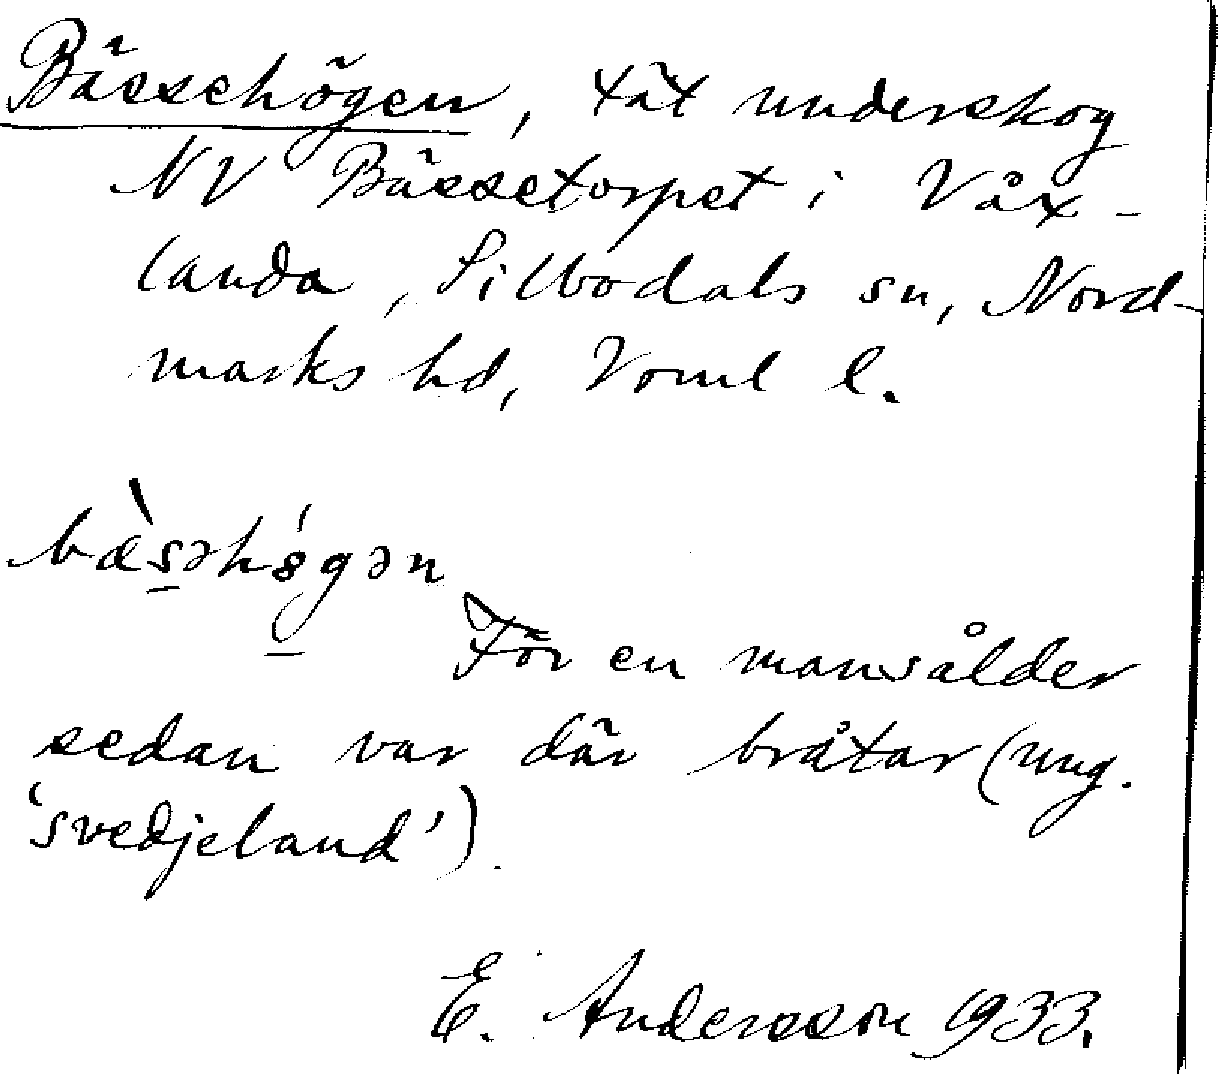 Bässehögen, tät underskog
NV Bässetorpet i Våx-
landa, Silbodals sn, Nord-
marks hd, Vorml l.
bæ̀s̲əhǿ̲gən
För en mansålder
sedan var där bråtar (ung.
'svedjeland').
E. Andersson 1933.